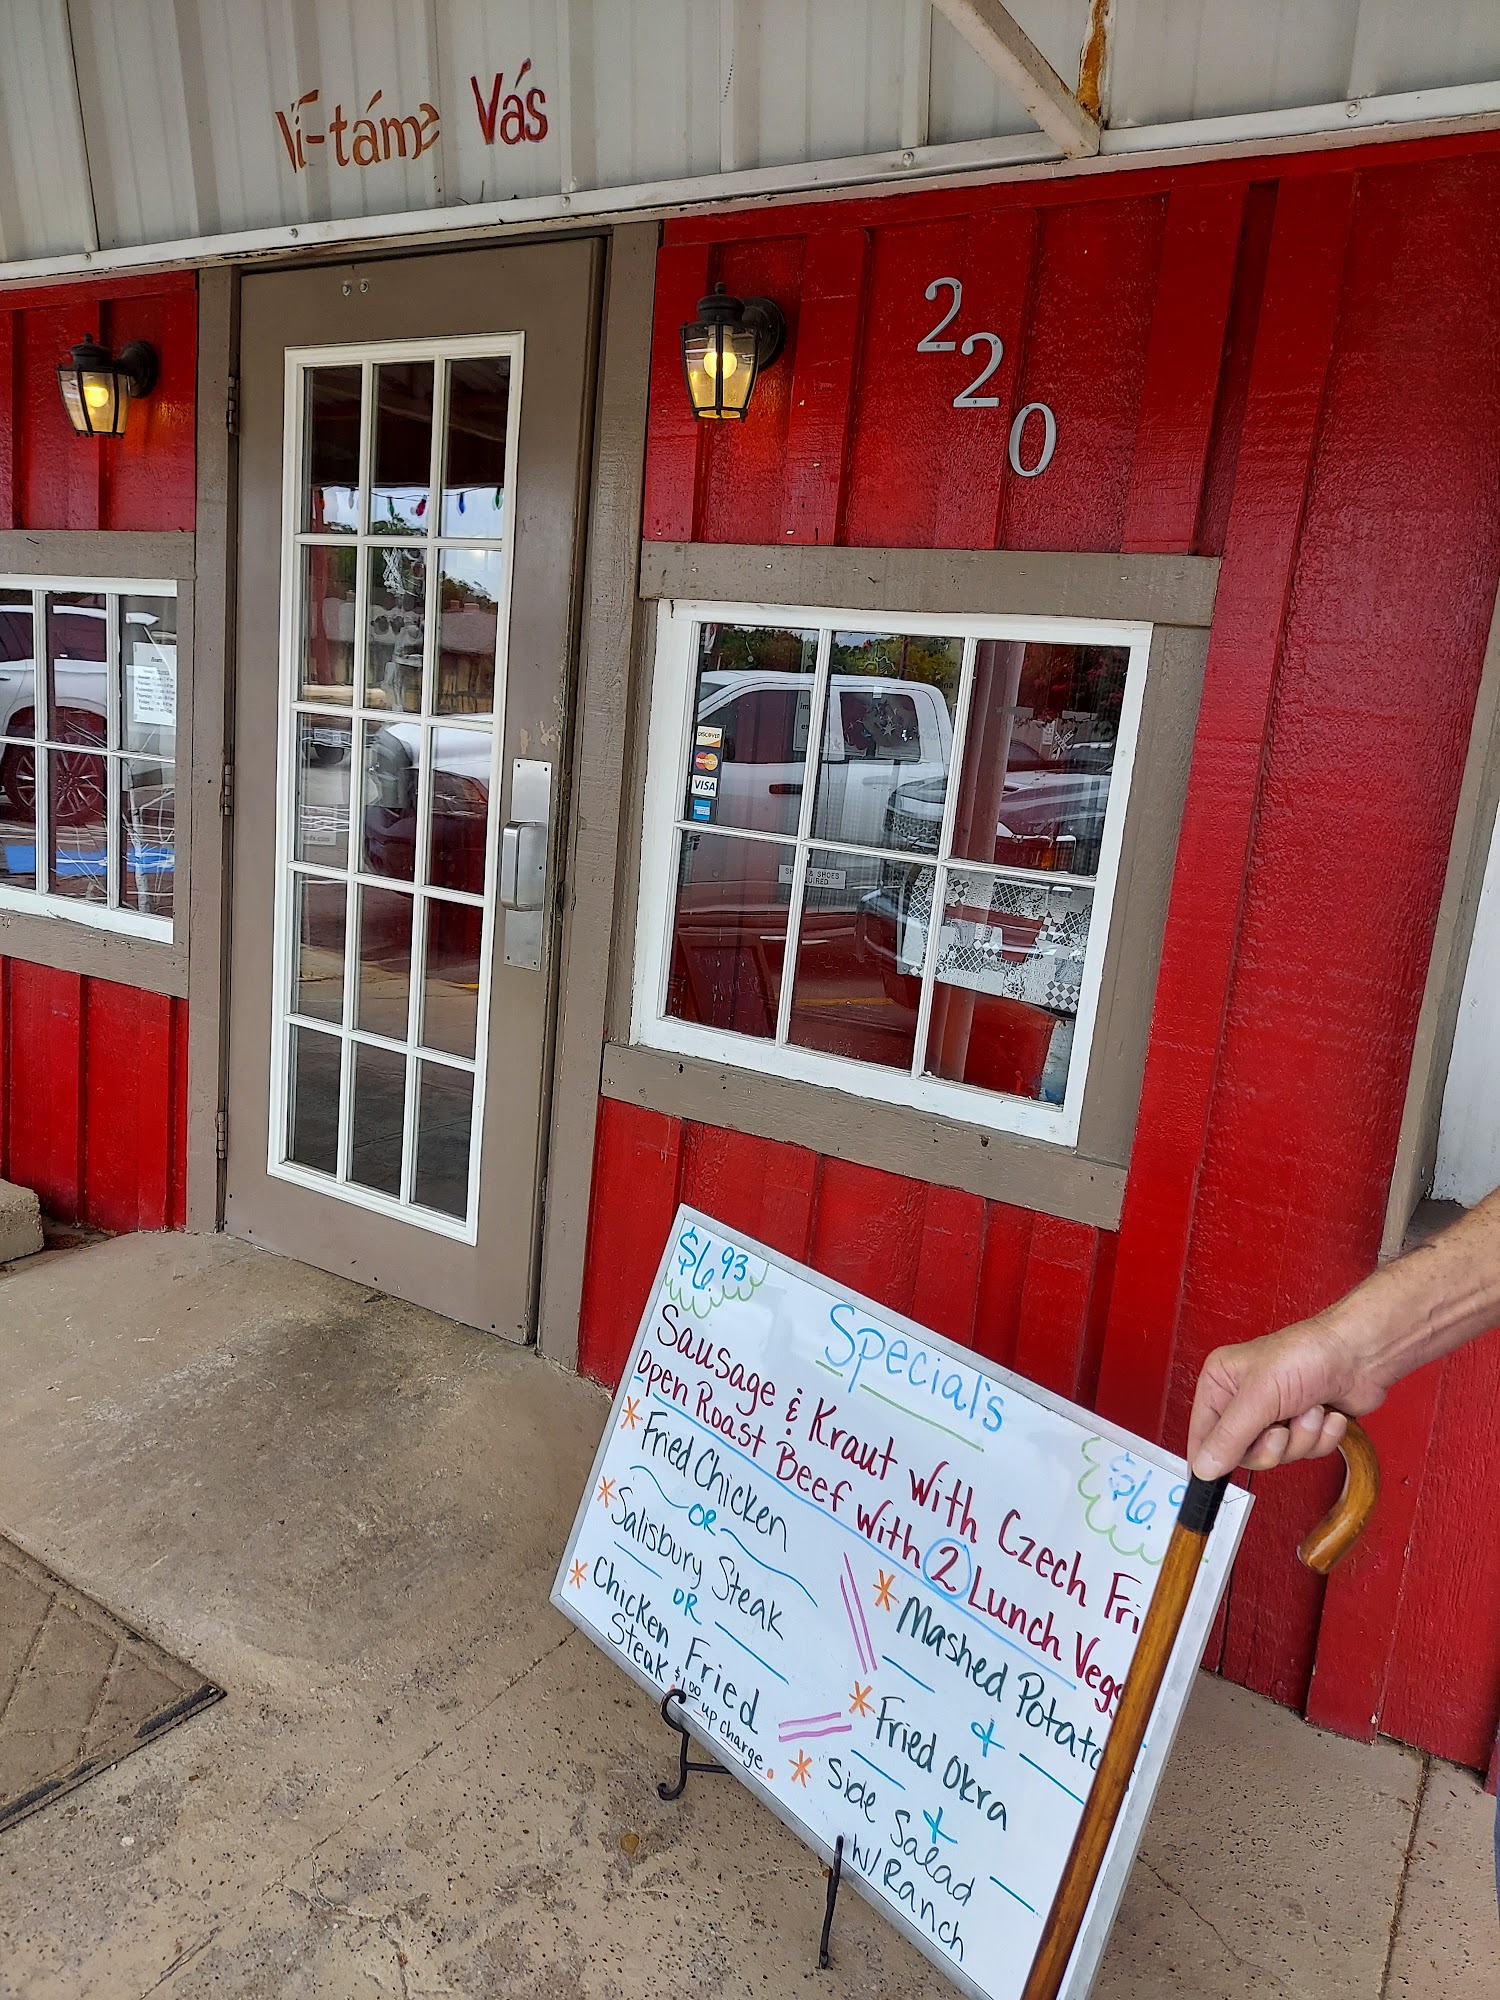 Ví-táme Vás
220
DISCOVER
MasterCard
VISA
& SHOES
$6.93
Special's
Sausage & Kraut with Czech Fri
Open Roast Beef with 2 Lunch Vegs
* Fried Chicken
OR
* Salisbury Steak
OR
* Chicken Fried
Steak $1.00 up charge.
* Mashed Potato
&
* Fried Okra
&
* Side Salad
W/Ranch
$6.9